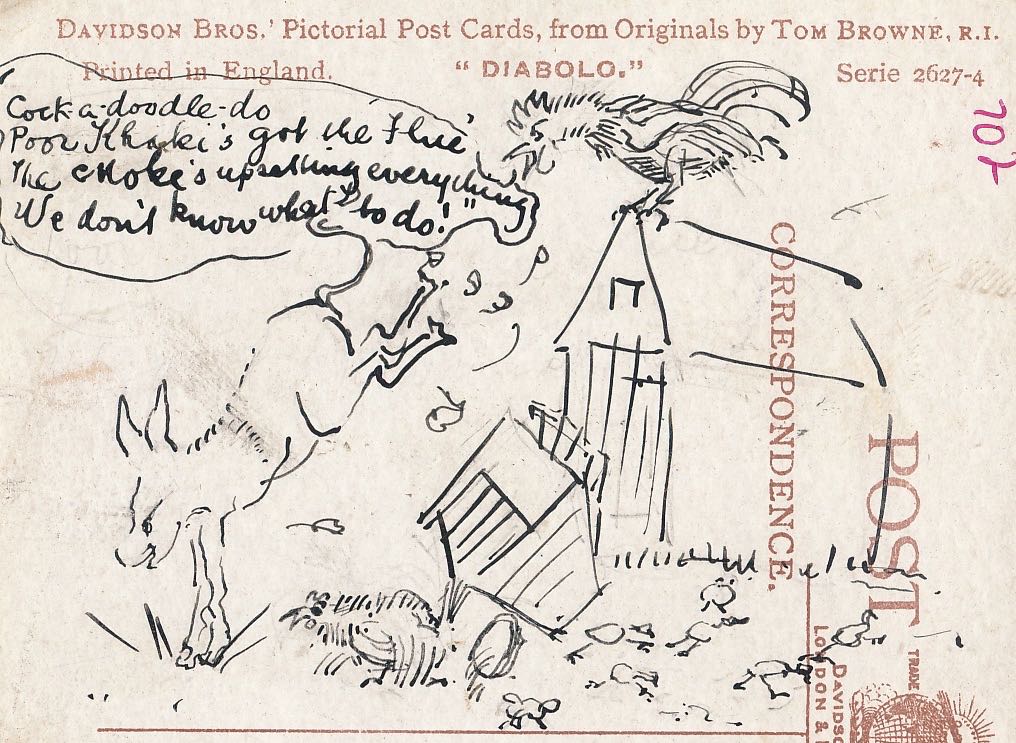 DAVIDSON BROS.' Pictorial Post Cards, from Originals by TOM BROWNE, R.I.
Printed in England.
“ DIABOLO.”
Serie 2627-4
Cock-a-doodle-do
Poor Khaki's got the Flue'
The Moke's upsetting everything
We don't know what to do!"
CORRESPONDENCE.
POST
DAVIDSO
LONDON &
TRADE